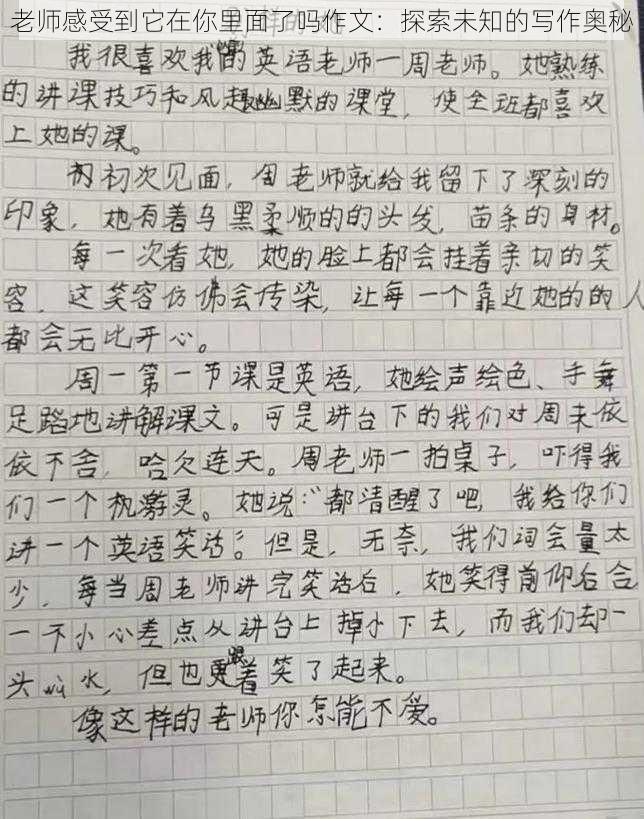 老师感受到它在你里面了吗作文：探索未知的写作奥秘
我很喜欢我的英语老师一周老师。她熟练
的讲课技巧和风趣幽默的课堂，使全班都喜欢
上她的课。
初次见面，周老师就给我留下了深刻的
印象，她有着乌黑柔顺的的头发，苗条的身材。
每一次看她，她的脸上都会挂着亲切的笑
容，这笑容仿佛会传染，让每一个靠近她的的人
都会无比开心。
周一第一节课是英语，她绘声绘色、手舞
足蹈地讲解课文。可是讲台下的我们对周末依
依不舍，哈欠连天。周老师一拍桌子，吓得我
们一个机激灵。她说：“都清醒了吧，我给你们
讲一个英语笑话”。但是，无奈，我们词会量太
少，每当周老师讲完笑话后，她笑得前仰后合
一不小心差点从讲台上掉下去，而我们却一
头wù水，但也跟着笑了起来。
像这样的老师你怎能不爱。